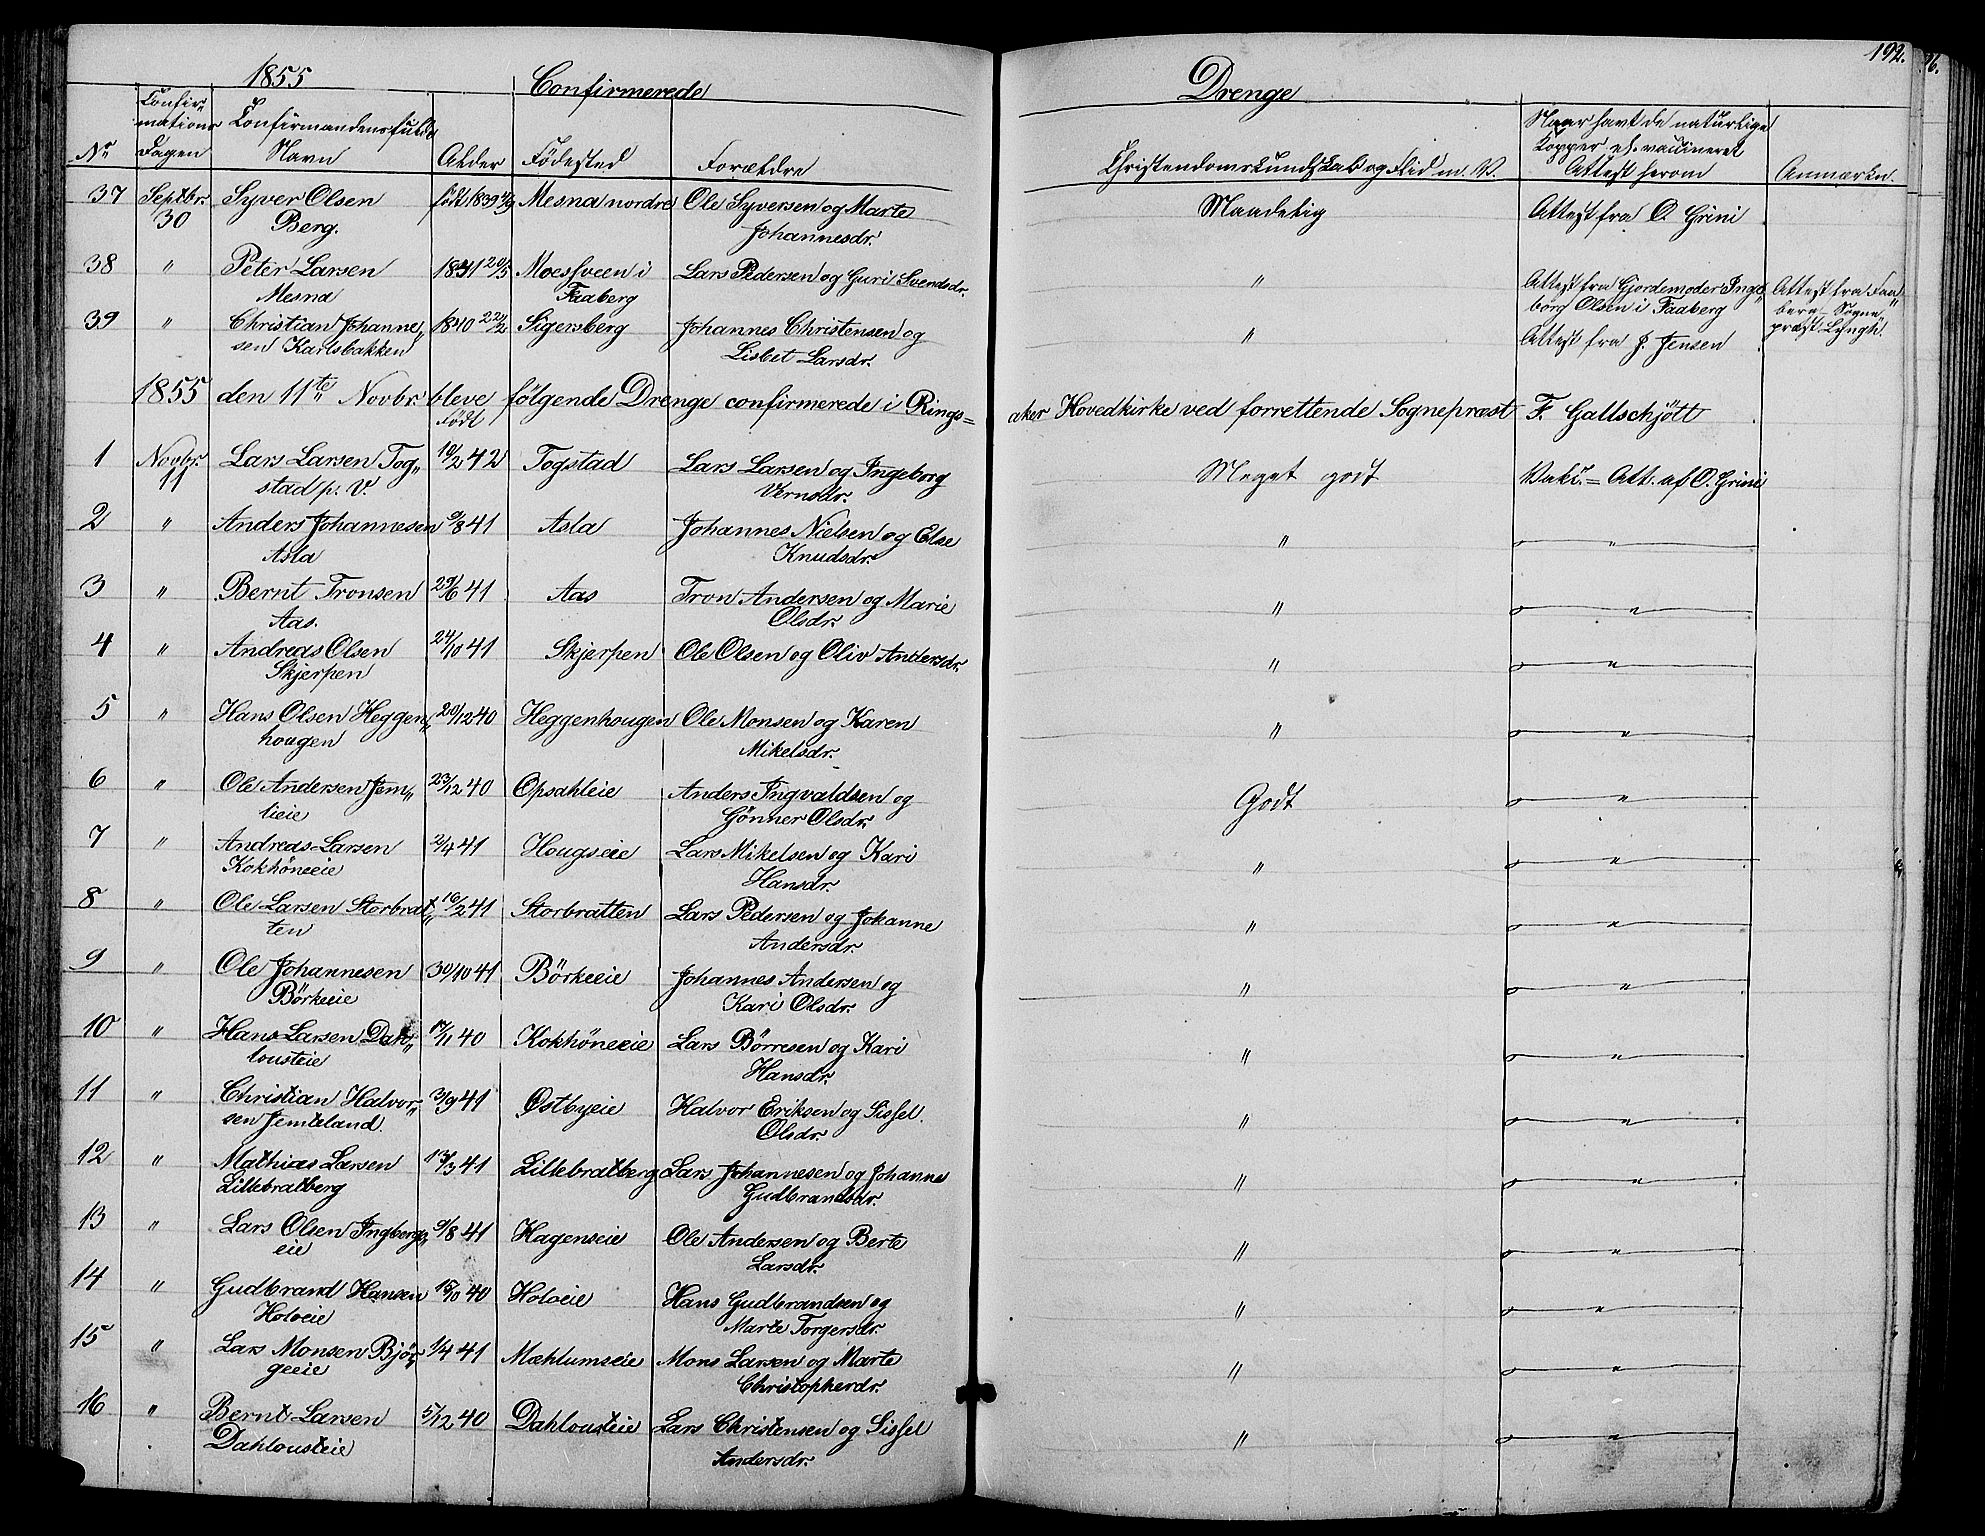 1855 Confirmerede Drenge 192.
Confir-
mations Confirmandens fulde Naar havt de naturlige
Kopper el. vaccineret
No Dagen Navn Alder Födested Forældre Christendomskundskab og Flid m. V. Attest herom Anmærkn.
37 Septbr. Syver Olsen född 1839 Mesna nordre Ole Syversen og Marte Maadelig Attest fra O. Grini
30 Berg. Johannesdr.
38 " Peter Larsen 1841 20/5 Moesveen i Lars Pedersen og Guri Svendsdr. " Attest fra Gjordemoder Inge Attest fra Faa„
Mesna Faaberg borg Olsen i Faaberg berg Sogne
39 " Christian Johanne„ 1840 22/2 Sigersberg Johannes Christensen og " Attest fra J. Jensen præst Lyngh.
sen Karlsbakken Lisbet Larsdr.
1855 den 11te Novbr. bleve fölgende Drenge confirmerede i Rings=aker Hovedkirke ved forrettende Sognepræst F. Gallschjött
Födt
1 Novbr. Lars Larsen Tog„ 10/2 42 Togstad Lars Larsen og Ingeborg Meget godt Vakc. = Att. af O. Grini
11 stad p. V. Vernsdr.
2 " Anders Johannesen 9/8 41 Asla Johannes Nielsen og Else " "
Asla Knudsdr.
3 " Bernt Tronsen 29/6 41 Aas Tron Andersen og Marie " "
Aas. Olsdr.
4 " Andreas Olsen 24/10 41 Skjerpen Ole Olsen og Oliv Andersdr. " "
Skjerpen
5 " Hans Olsen Heggen„ 20/12 40 Heggenhougen Ole Monsen og Karen " "
hougen Mikelsdr.
6 " Ole Andersen Jem„ 23/12 40 Opsahleie Anders Ingvaldsen og Godt "
lieie Gönner Olsdr.
7 " Andreas Larsen 2/4 41 Hougseie Lars Mikelsen og Kari " "
Kokhöneeie Hansdr.
8 " Ole Larsen Storbrat„ 16/2 41 Storbratten Lars Pedersen og Johanne " "
ten Andersdr.
9 " Ole Johannesen 30/10 41 Börkeeie Johannes Andersen og " "
Börkeeie Kari Olsdr.
10 " Hans Larsen Dah„ 17/11 40 Kokhöneeie Lars Börresen og Kari " "
lousteie Hansdr.
11 " Christian Halvor„ 3/9 41 Østbyeie Halvor Eriksen og Sissel " "
sen Jemtland. Olsdr.
12 " Mathias Larsen 13/3 41 Lillebratberg Lars Johannesen og Johanne " "
Lillebratberg Gudbrandsdr.
13 " Lars Olsen Ingbergs„ 9/8 41 Hagenseie Ole Andersen og Berte " "
eie Larsdr.
14 " Gudbrand Hansen 15/10 40 Holoeie Hans Gudbrandsen og " "
Holoeie Marte Torgersdr.
15 " Lars Monsen Björ„ 1/4 41 Mæhlumseie Mons Larsen og Marte " "
geeie Christopherdr.
16 " Bernt Larsen 5/12 40 Dahlousteie Lars Christensen og Sissel " "
Dahlousteie Andersdr.